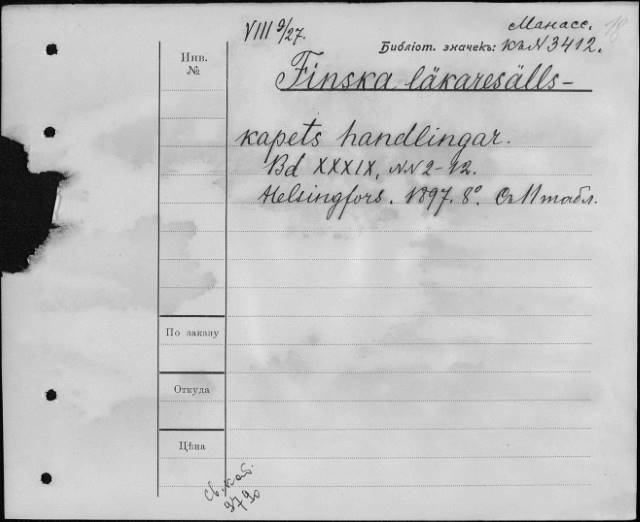 VIII 9/27.
Манасс. 18
Библіот. значекъ: къ N 3412.
Инв.
№
Finska läkaresälls-
kapets handlingar.
Bd XXXIX, NN 2-12.
Helsingfors. 1897. 8°. Съ 11 табл.
По заказу
Откуда
Цѣна
Св. каб.
9790